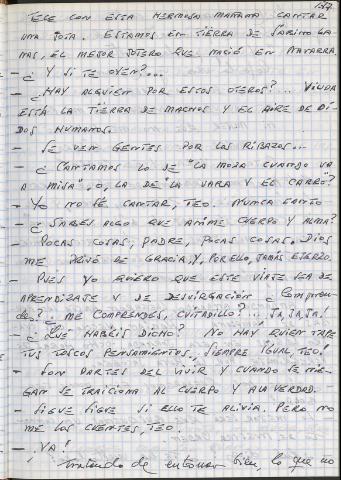 137.
TECE CON ESTA HERMOSA MAÑANA CANTAR
UNA JOTA. ESTAMOS EN TIERRA DE SABINO GA-
NAS, EL MEJOR JOTERO QUE NACIÓ EN NAVARRA
- ¿Y SI TE OYEN?...
- ¿HAY ALGUIEN POR ESTOS OTEROS?.. VIUDA
ESTÁ LA TIERRA DE MACHOS Y EL AIRE DE OÍ-
DOS HUMANOS.
- SE VEN GENTES POR LOS RIBAZOS...
- ¿CANTAMOS LO DE "LA MOZA CUANDO VA
A MISA", O, LA DE "LA VARA Y EL CARRO?
- YO NO SÉ CANTAR, TEO. NUNCA CANTO
- ¿SABES ALGO QUE ANIME CUERPO Y ALMA?
- POCAS COSAS, PADRE, POCAS COSAS. DIOS
ME PRIVÓ DE GRACIA, Y, POR ELLO, JAMÁS EJERZO.
- PUES YO QUIERO QUE ESTE VIAJE SEA DE
APRENDIZAJE Y DE DESVIRGACIÓN ¿Compren-
des?. ¿ME COMPRENDES, CUITADILLO?.. JA, JA, JA!
- ¿QUÉ HABRÉIS DICHO? NO HAY QUIEN TAPE
TUS TOSCOS PENSAMIENTOS, SIEMPRE IGUAL, TEO!
- SON PARTES DEL VIVIR Y CUANDO SE NIE-
GAN SE TRAICIONA AL CUERPO Y A LA VERDAD.
- SIGUE SIGUE SI ELLO TE ALIVIA. PERO NO
ME LOS CUENTES, TEO.
- ¡VA!
tratando de entonar bien, lo que no